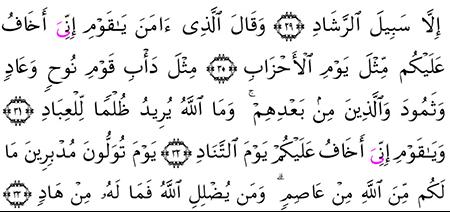 إِلَّا سَبِيلَ ٱلرَّشَادِ ﴿٢٩﴾ وَقَالَ ٱلَّذِى ءَامَنَ يَـٰقَوْمِ إِنِّىَ أَخَافُ
عَلَيْكُم مِّثْلَ يَوْمِ ٱلْأَحْزَابِ ﴿٣٠﴾ مِثْلَ دَأْبِ قَوْمِ نُوحٍ وَعَادٍ
وَثَمُودَ وَٱلَّذِينَ مِنۢ بَعْدِهِمْ ۚ وَمَا ٱللَّهُ يُرِيدُ ظُلْمًا لِّلْعِبَادِ ﴿٣١﴾
وَيَـٰقَوْمِ إِنِّىَ أَخَافُ عَلَيْكُمْ يَوْمَ ٱلتَّنَادِ ﴿٣٢﴾ يَوْمَ تُوَلُّونَ مُدْبِرِينَ مَا
لَكُم مِّنَ ٱللَّهِ مِنْ عَاصِمٍ ۗ وَمَن يُضْلِلِ ٱللَّهُ فَمَا لَهُۥ مِنْ هَادٍ ﴿٣٣﴾